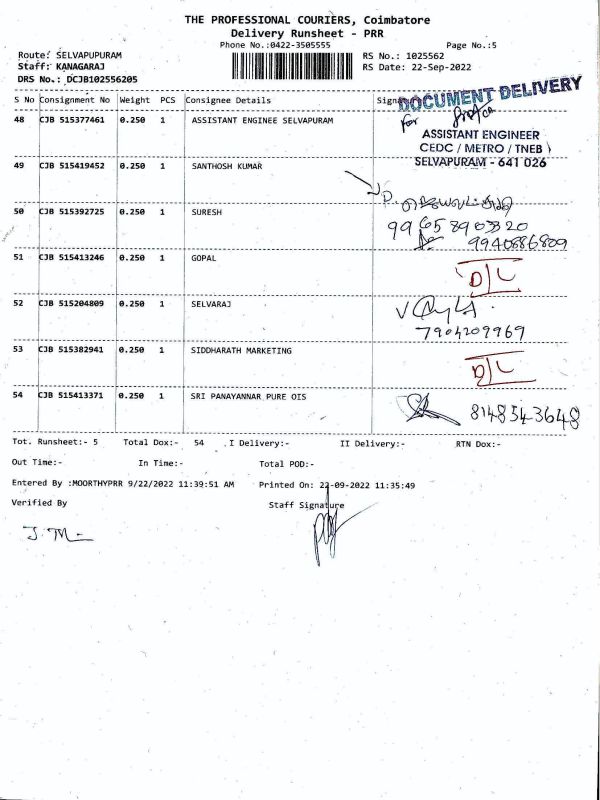 THE PROFESSIONAL COURIERS, Coimbatore
Delivery Runsheet - PRR
Phone No.:0422-3505555 Page No.:5
Route: SELVAPUPURAM RS No.: 1025562
Staff: KANAGARAJ RS Date: 22-Sep-2022
DRS No.: DCJB102556205
S No Consignment No Weight PCS Consignee Details
DOCUMENT DELIVERY
48 CJB 515377461 0.250 1 ASSISTANT ENGINEE SELVAPURAM
for
ASSISTANT ENGINEER
CEDC / METRO / TNEB
SELVAPURAM - 641 026
49 CJB 515419452 0.250 1 SANTHOSH KUMAR
50 CJB 515392725 0.250 1 SURESH
9940886809
51 CJB 515413246 0.250 1 GOPAL D/L
52 CJB 515204809 0.250 1 SELVARAJ
7904209969
53 CJB 515382941 0.250 1 SIDDHARATH MARKETING D/L
54 CJB 515413371 0.250 1 SRI PANAYANNAR PURE OIS 8148543648
Tot. Runsheet:- 5 Total Dox:- 54 .I Delivery:- II Delivery:- RTN Dox:-
Out Time:- In Time:- Total POD:-
Entered By :MOORTHYPRR 9/22/2022 11:39:51 AM Printed On: 22-09-2022 11:35:49
Verified By Staff Signature